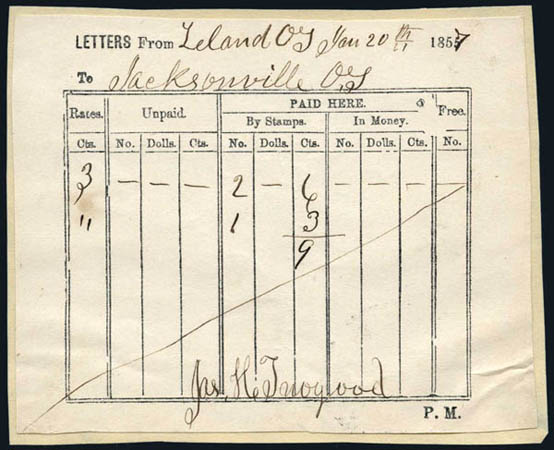 LETTERS From Leland OT Jan 20th 1857
To Jacksonville OT
Rates. Unpaid. PAID HERE. Free.
By Stamps. In Money.
Cts. No. Dolls. Cts. No. Dolls. Cts. No. Dolls. Cts. No.
3 — — — 2 — 6 — — — —
" 1 3
9
Jas. H. Twogood
P. M.